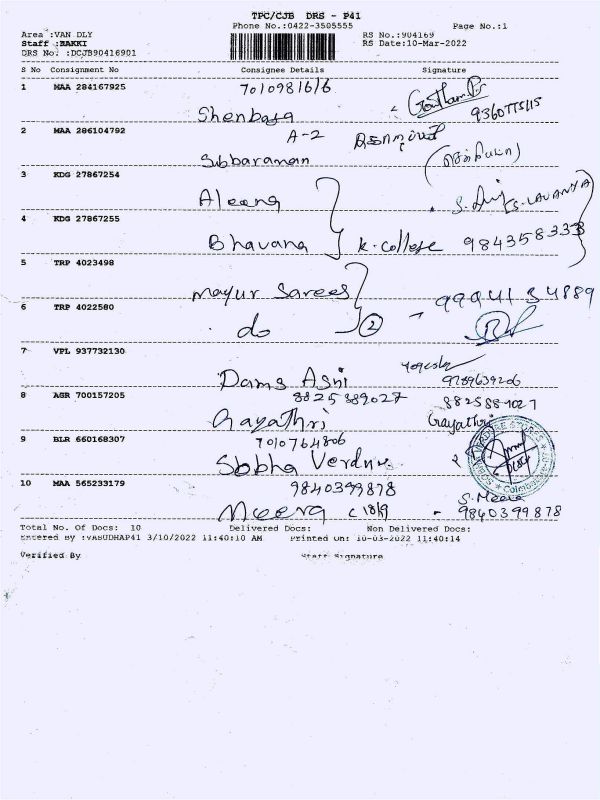 TPC/CJB DRS - P41
Phone No.:0422-3505555 Page No.:1
Area :VAN DLY RS No.:904169
Staff :BAKKI RS Date:10-Mar-2022
DRS No. :DCJB90416901
S No Consignment No Consignee Details Signature
1 MAA 284167925 7010981616
Shenbaga 9360775115
2 MAA 286104792 A-2
Subbaraman
3 KDG 27867254
Aleena S. LAVANYA
4 KDG 27867255
Bhavana K. College 9843583338
5 TRP 4023498
Mayur Sarees 9994134889
6 TRP 4022580
do 2
7 VPL 937732130
Dams Asni 9789639206
8 AGR 700157205 8825889027 8825889027
Gayathri Gayathri
9 BLR 660168307 7010764806
Sobha
10 MAA 565233179 9840399878 S. Meera
Meera C 1819 - 9840399878
Total No. Of Docs: 10 Delivered Docs: Non Delivered Docs:
Entered By :VASUDHAP41 3/10/2022 11:40:10 AM Printed On: 10-03-2022 11:40:14
Verified By Staff Signature